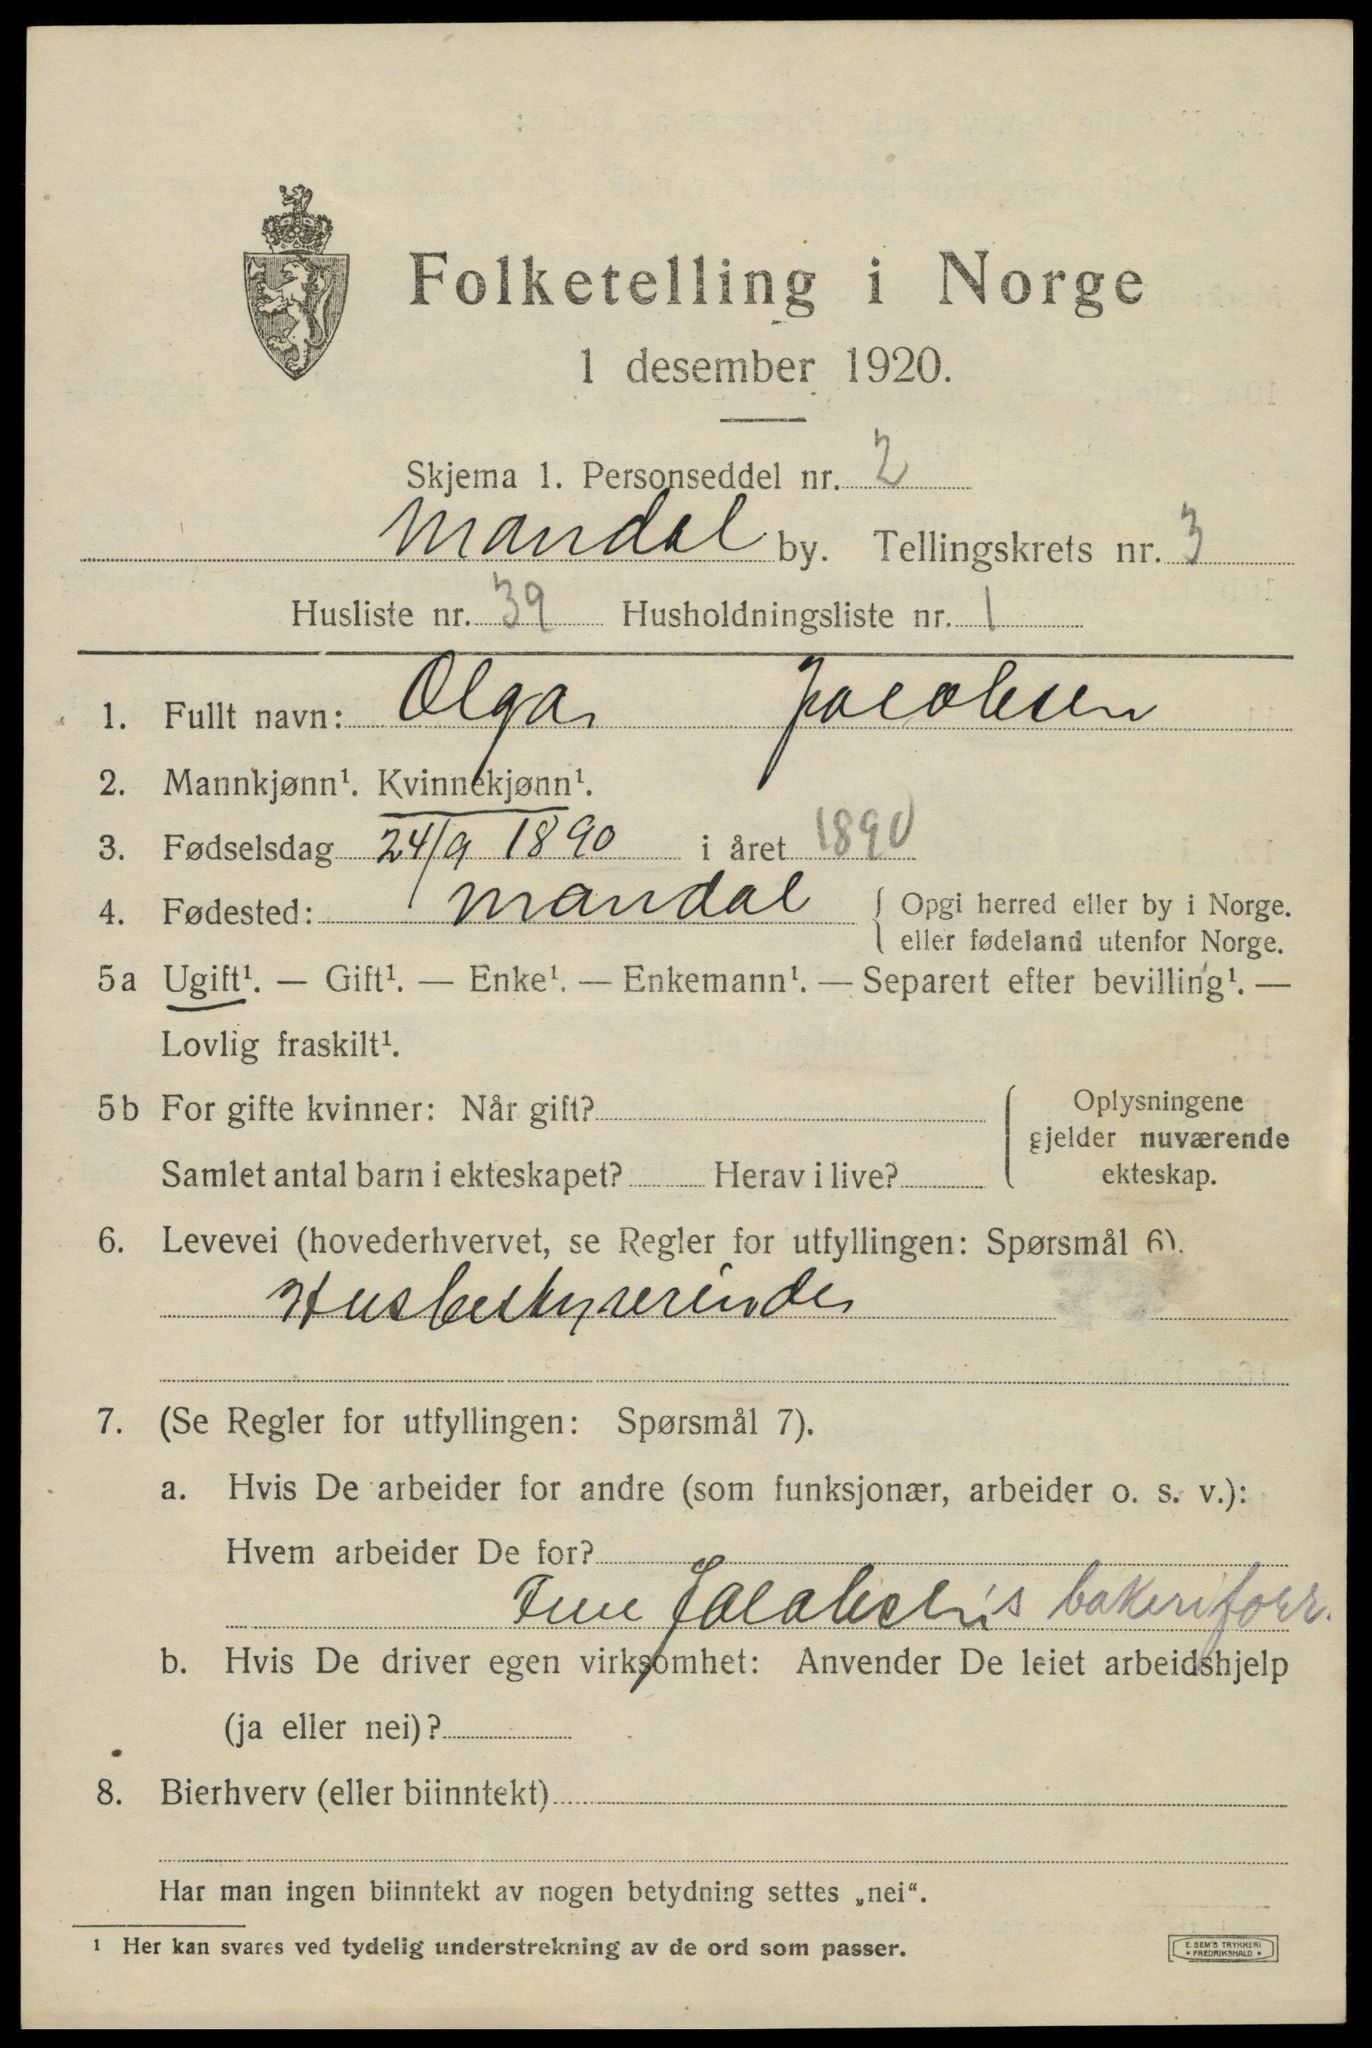 Folketelling i Norge
1 desember 1920.
Skjema 1. Personseddel nr. 2
Mandal by. Tellingskrets nr. 3
Husliste nr. 39 Husholdningsliste nr. 1
1. Fullt navn: Olga Jacobsen
2. Mannkjønn¹. Kvinnekjønn¹.
3. Fødselsdag 24/9 1890 i året 1890
4. Fødested: Mandal { Opgi herred eller by i Norge.
eller fødeland utenfor Norge.
5a Ugift¹. — Gift¹. — Enke¹. — Enkemann¹. — Separert efter bevilling¹. —
Lovlig fraskilt¹.
5b For gifte kvinner: Når gift? Oplysningene
gjelder nuværende
Samlet antal barn i ekteskapet? Herav i live? ekteskap.
6. Levevei (hovederhvervet, se Regler for utfyllingen: Spørsmål 6).
Husbestyrerinde
7. (Se Regler for utfyllingen: Spørsmål 7).
a. Hvis De arbeider for andre (som funksjonær, arbeider o. s. v.):
Hvem arbeider De for?
Jacobsen's bakeriforr.
b. Hvis De driver egen virksomhet: Anvender De leiet arbeidshjelp
(ja eller nei)?
8. Bierhverv (eller biinntekt)
Har man ingen biinntekt av nogen betydning settes „nei“.
¹ Her kan svares ved tydelig understrekning av de ord som passer.
E. SEM'S TRYKKERI
* FREDRIKSHALD *